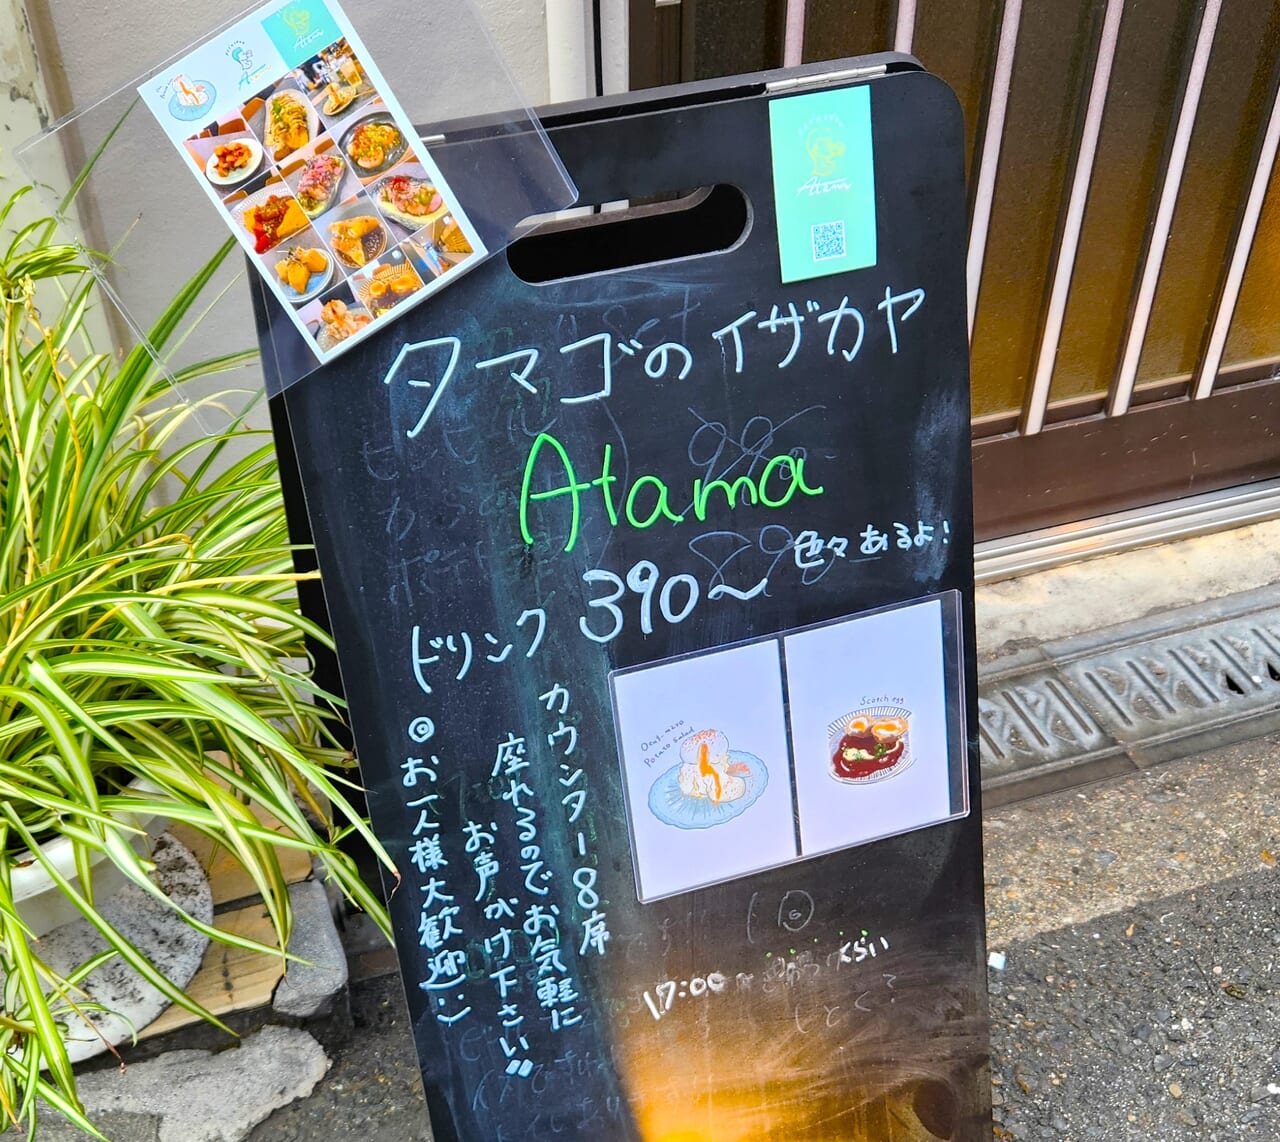 Atama
Atama
タマゴのイザカヤ
Atama
色々あるよ!
ドリンク 390〜
カウンター8席
座れるのでお気軽に
お声がけ下さい
◎お一人様大歓迎:)
Potato Salad
Scotch egg
17:00〜
くらい